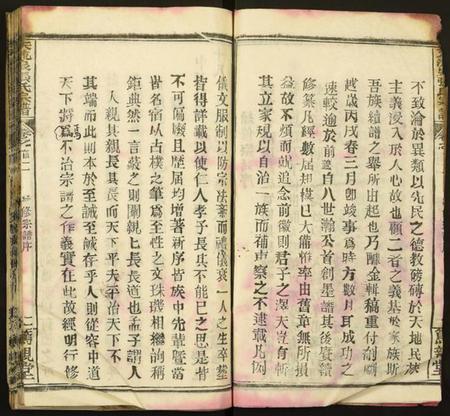 不致淪於異類以先民之德教磅礴於天地民族
主義浸入於人心故也顧二者之義基於家族斯
吾族續譜之舉所由起也乃醵金輯稿重付剞劂
越歲丙戌春三月卽竣事爲時方數月耳成功之
速較逾於前 自八世瀚公首創墨譜其後賡續
修纂凡經數屆規模已大備惟率由舊章無所損
益故不煩而就追念前徽則君子之澤大豈有斬
其立家規以自治一族而補東察之不逮戰凡例
儀文服制以防宗法紊而禮儀衰一人之生卒塋
皆得詳載以使仁人孝子長其不能已之思是皆
不可隔閡且歷屆均增著新序皆族中先輩暨當
世名宿以古樸之筆寫至性之文珠璣相繼詢稱
鉅典然一言蔽之則親親長長道也孟子謂人
人親其親長其長而天下平夫平治天下不
其端而此則本於至誠至誠存乎人則從容中道
天下將爲不治宗譜之作義實在此故經明行修
修宗譜序